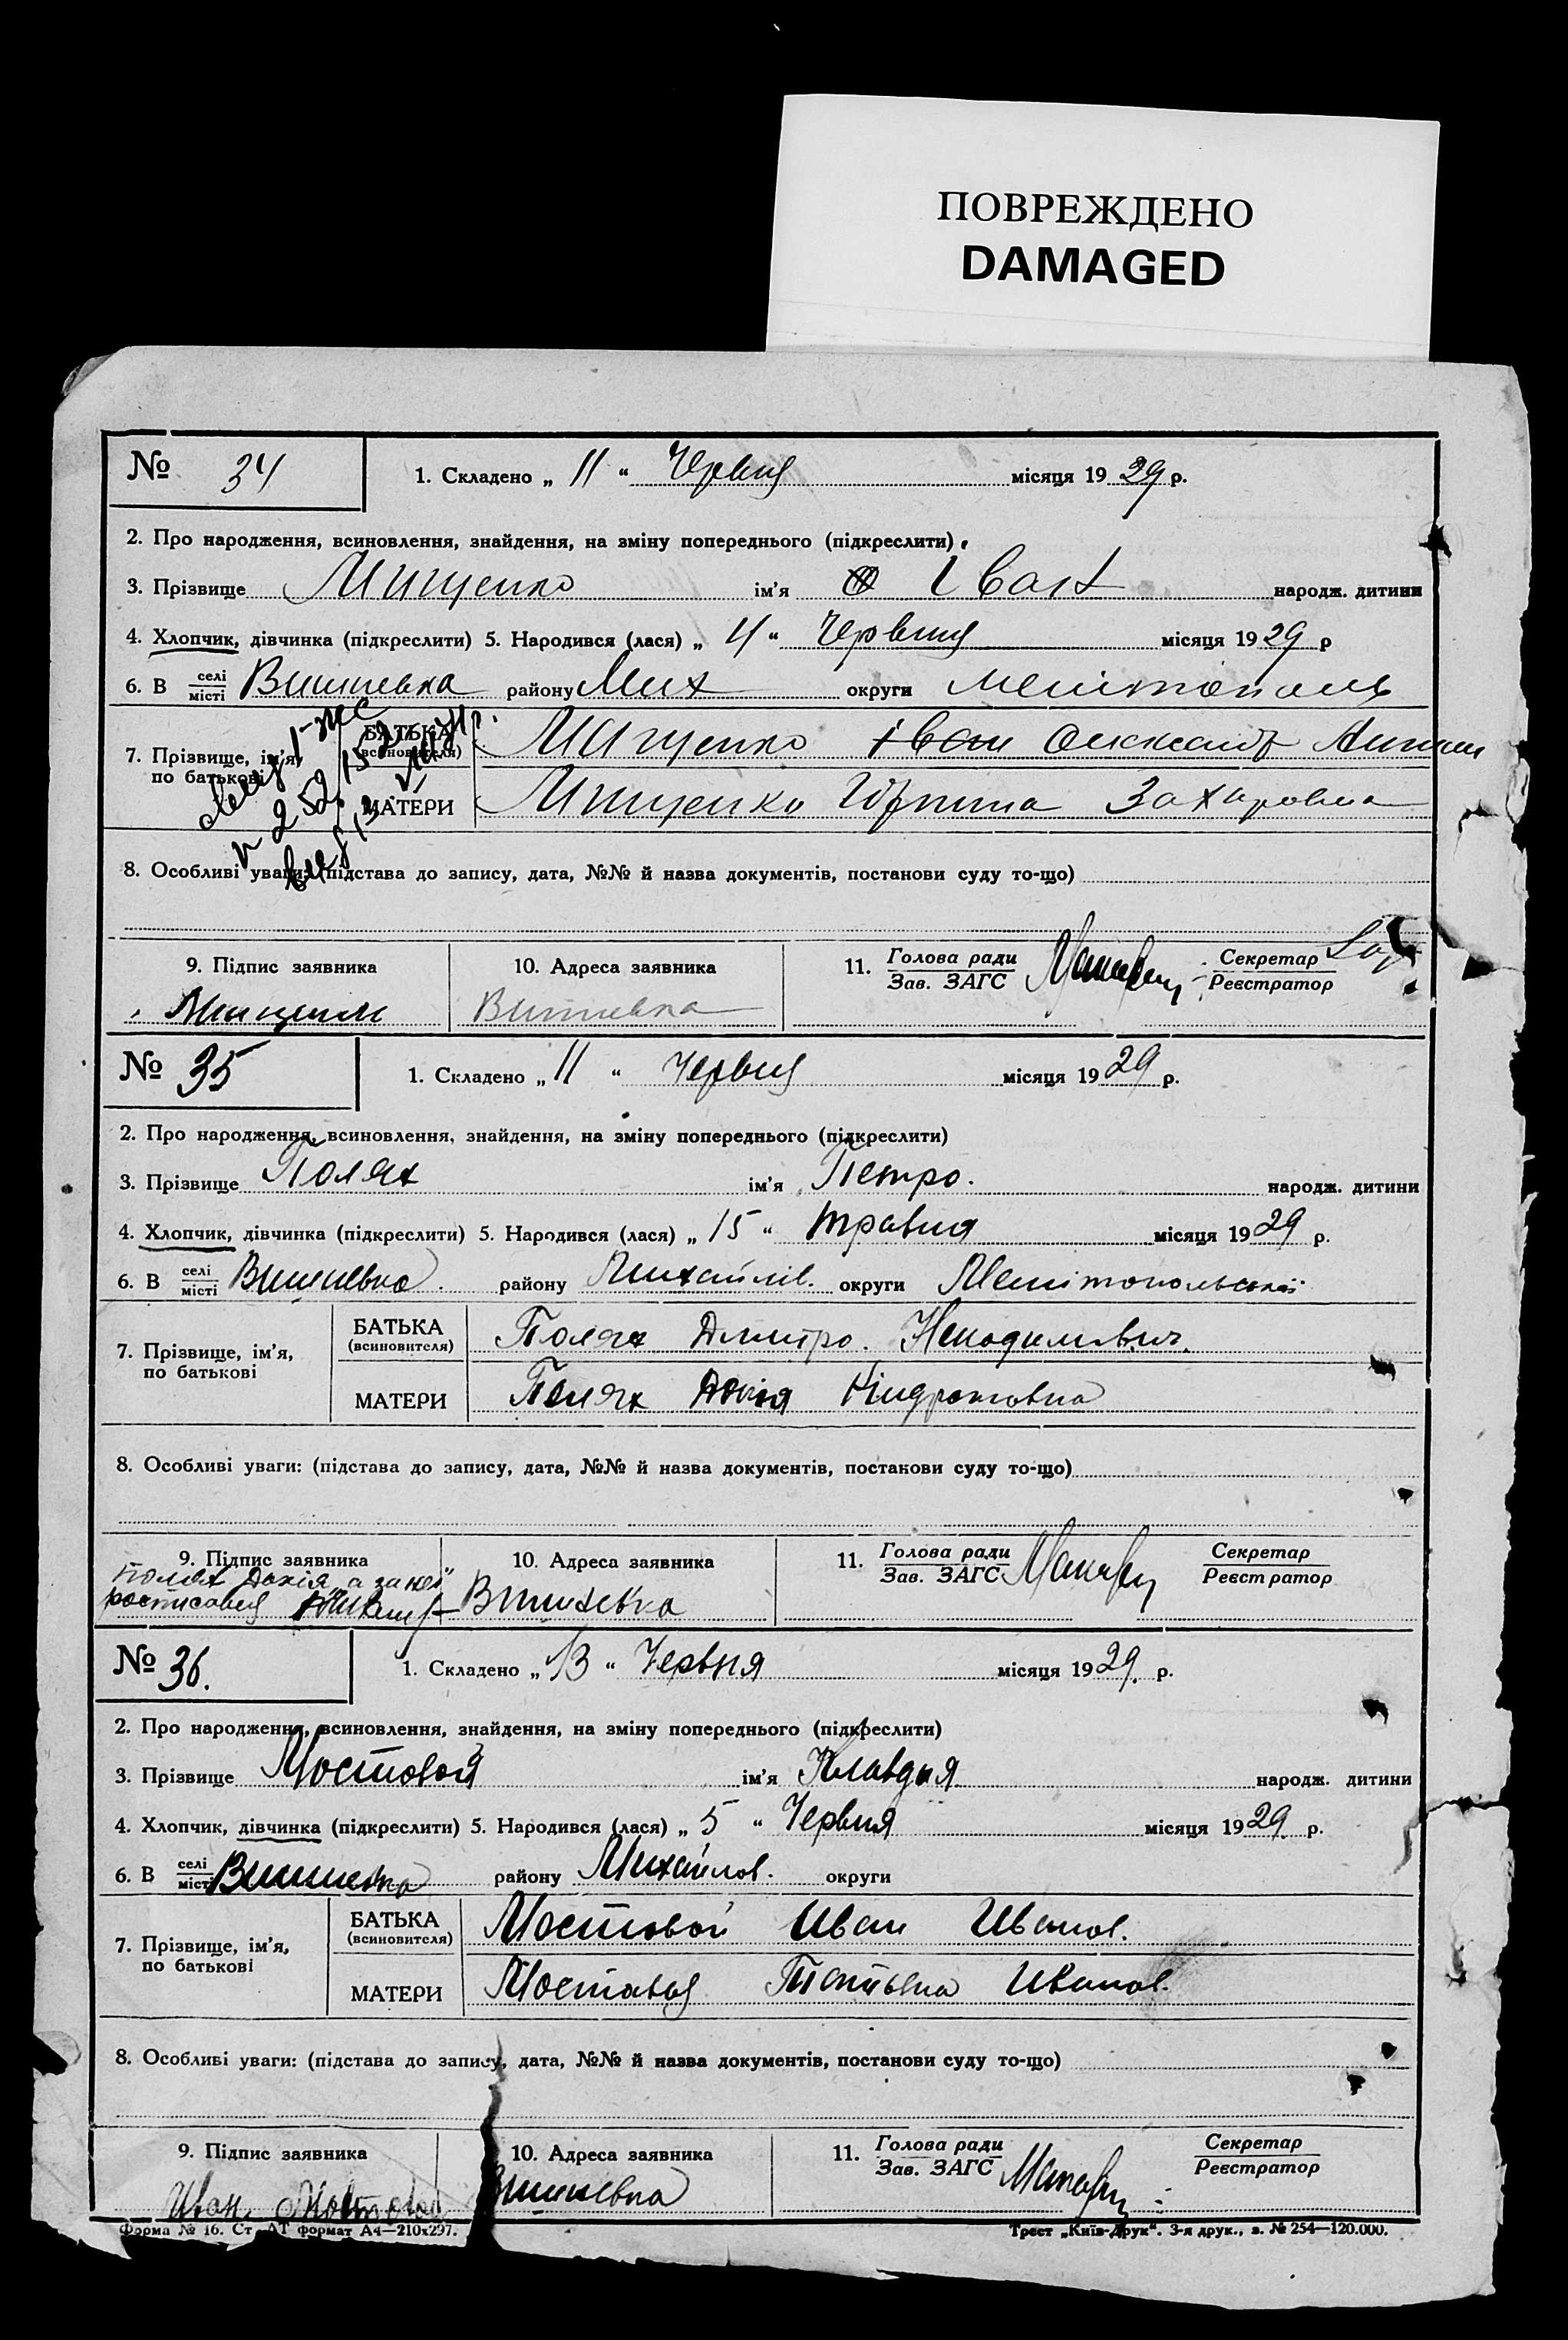 ПОВРЕЖДЕНО
DAMAGED
№ 34 1. Складено „ 11 “ Червня місяця 1929 р.
2. Про народження, всиновлення, знайдення, на зміну попереднього (підкреслити)
3. Прізвище Мищенко ім'я Іван народж. дитини
4. Хлопчик, дівчинка (підкреслити) 5. Народився (лася) „ 4 “ Червня місяця 1929 р
6. В селі місті Вишневка району Мих округи Мелітополь
7. Прізвище, ім'я, по батькові
БАТЬКА (всиновителя) Мищенко Іван Олександр
МАТЕРИ Мищенко Горпина Захаровна
8. Особливі уваги: (підстава до запису, дата, №№ й назва документів, постанови суду то-що)
9. Підпис заявника 10. Адреса заявника 11. Голова ради Зав. ЗАГС Секретар Реєстратор
Мищенко Вишневка
№ 35 1. Складено „ 11 “ Червня місяця 1929 р.
2. Про народження, всиновлення, знайдення, на зміну попереднього (підкреслити)
3. Прізвище Полях ім'я Петро. народж. дитини
4. Хлопчик, дівчинка (підкреслити) 5. Народився (лася) „ 15 “ травня місяця 1929 р.
6. В селі місті Вишневка. району Михайлів. округи Мелітопольської
7. Прізвище, ім'я, по батькові
БАТЬКА (всиновителя) Полях Дмитро.
МАТЕРИ Полях Докія Кіндратовна
8. Особливі уваги: (підстава до запису, дата, №№ й назва документів, постанови суду то-що)
9. Підпис заявника 10. Адреса заявника 11. Голова ради Зав. ЗАГС Секретар Реєстратор
Полях Докія а за неї
росписався Вишневка
№ 36. 1. Складено „ 13 “ Червня місяця 1929. р.
2. Про народження, всиновлення, знайдення, на зміну попереднього (підкреслити)
3. Прізвище Мостовой ім'я Клавдия народж. дитини
4. Хлопчик, дівчинка (підкреслити) 5. Народився (лася) „ 5 “ Червня місяця 1929. р.
6. В селі місті Вишневка району Михайлов. округи
7. Прізвище, ім'я, по батькові
БАТЬКА (всиновителя) Мостовой Иван Иванов.
МАТЕРИ Мостовая Татьяна Иванов.
8. Особливі уваги: (підстава до запису, дата, №№ й назва документів, постанови суду то-що)
9. Підпис заявника 10. Адреса заявника 11. Голова ради Зав. ЗАГС Секретар Реєстратор
Иван Вишневка
Форма № 16. Ст. АТ формат А4—210x297. Трест „Київ-Друк“. 3-я друк., з. № 254—120.000.